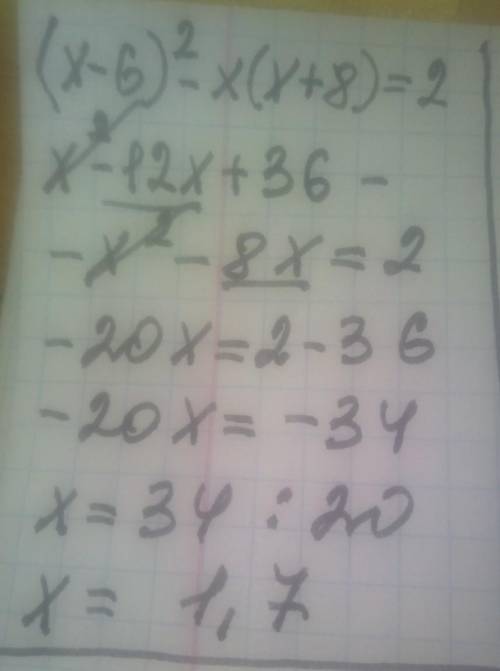 (x-6)² - x(x+8) = 2
x² - 12x + 36 -
- x² - 8x = 2
-20x = 2 - 36
-20x = -34
x = 34 : 20
x = 1,7